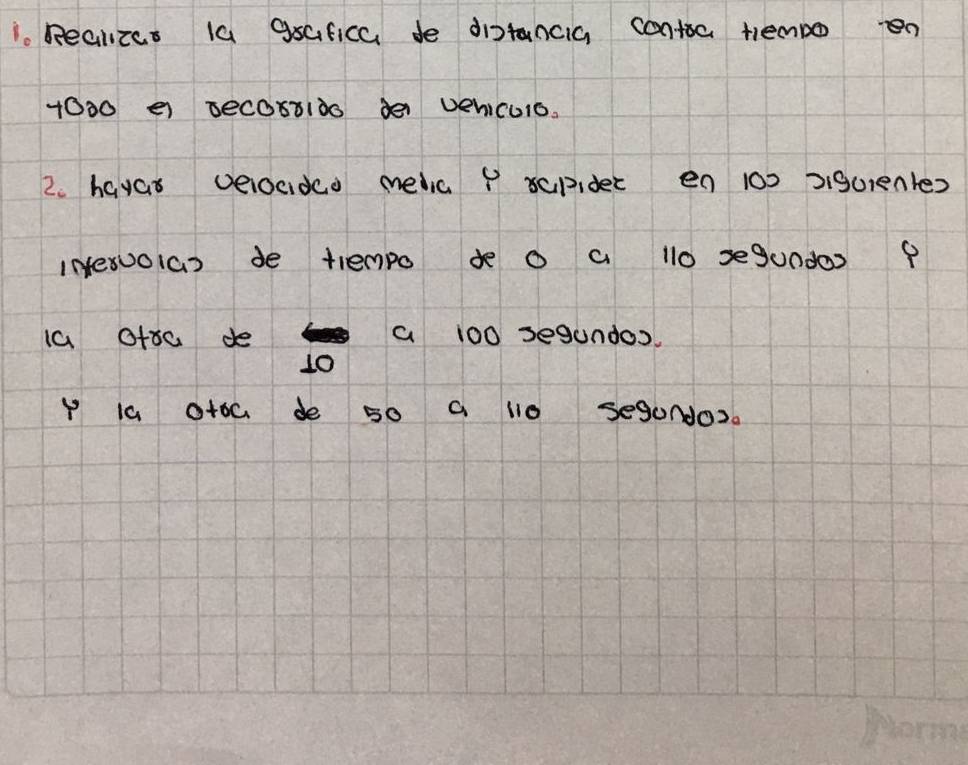 1. Realizar la grafica de distancia contra tiempo en
todo el recorrido del vehiculo.
2. hayar velocidad media y rapidez en los siguientes
intervolas de tiempo de 0 a 110 segundos y
la otra de a 100 segundos.
10
y la otra de 50 a 110 segundos.
Norma